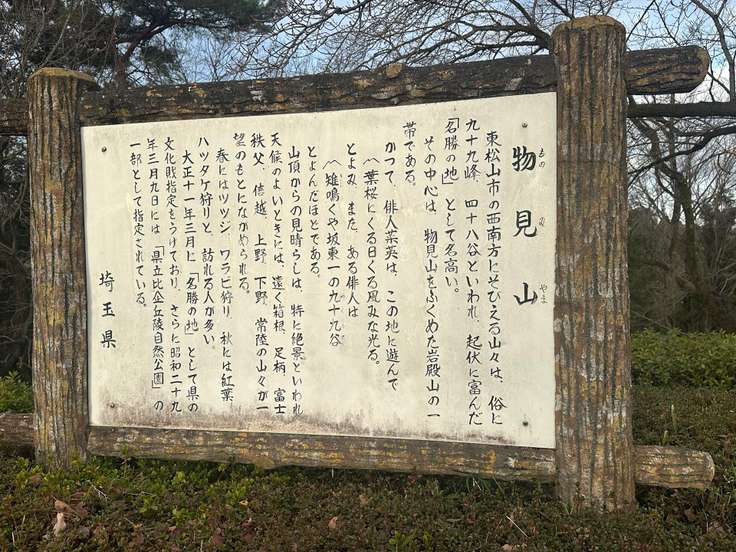 物見山
もの み やま
東松山市の西南方にそびえる山々は、俗に
九十九峰、四十八谷といわれ、起伏に富んだ
「名勝の地」として名高い。
その中心は、物見山をふくめた岩殿山の一
帯である。
かつて、俳人菜英は、この地に遊んで
〈葉桜にくる日くる日風みな光る。
とよみ、また、ある俳人は
〈雉鳴くや坂東一の九十九谷
とよんだほどである。
山頂からの見晴らしは、特に絶景といわれ
天候のよいときには、遠く箱根、足柄、富士
秩父、信越、上野、下野、常陸の山々が一
望のもとにながめられる。
春にはツツジ、ワラビ狩り、秋には紅葉
ハツタケ狩りと、訪れる人が多い。
大正十一年三月に「名勝の地」として県の
文化財指定をうけており、さらに昭和二十九
年三月九日には「県立比企丘陵自然公園」の
一部として指定されている。
埼玉県